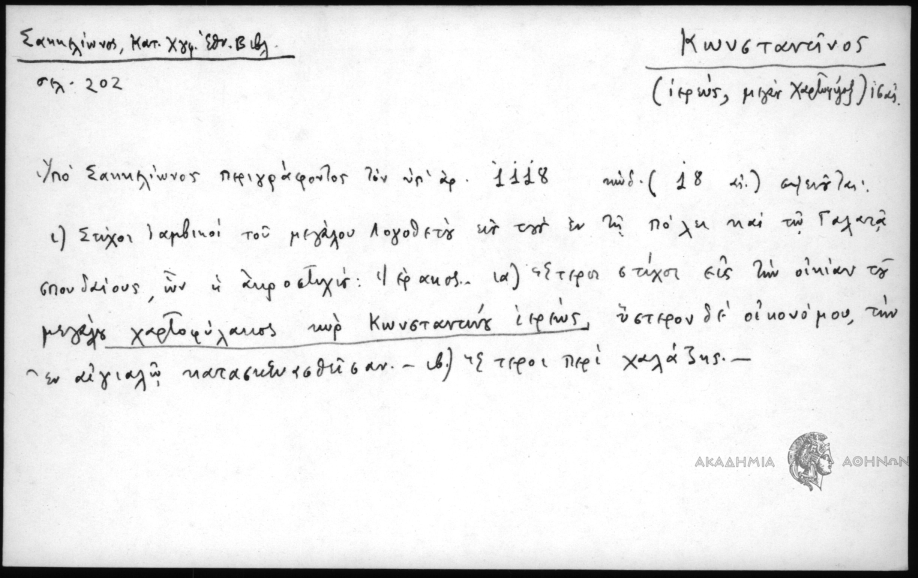 Σακκελίωνος, Κατ. Χγφ. Ἐθν. Βιβλ.
σελ. 202
Κωνσταντῖνος
(ἱερεύς, μέγας Χαρτοφύλαξ)
Ὑπό Σακκελίωνος περιγράφοντος τὸν ὑπ' ἀρ. 1118 κώδ. (18 αἰ.)
ι) Στίχοι ἰαμβικοί τοῦ μεγάλου Λογοθέτου εἰς τοὺς ἐν τῇ πόλει καί τῷ Γαλατᾷ
σπουδαίους, ὧν ἡ ἀκροστιχίς: Ἱέρακος.. ια) Ἕτεροι στίχοι εἰς τὴν οἰκίαν τοῦ
μεγάλου χαρτοφύλακος κὺρ Κωνσταντίνου ἱερέως, ὕστερον δέ οἰκονόμου, τὴν
ἐν αἰγιαλῷ κατασκευασθεῖσαν. — ιβ.) Ἕτεροι περί χαλάζης. —
ΑΚΑΔΗΜΙΑ ΑΘΗΝΩΝ